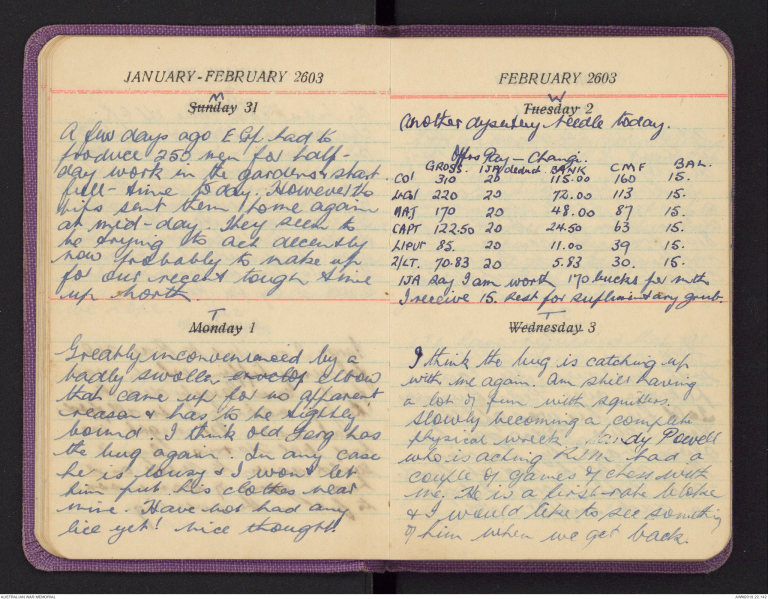 JANUARY-FEBRUARY 2603
M
Sunday 31
A few days ago E Gp had to
produce 250 men for half-
day work in the gardens & start
full-time today. However the
nips sent them home again
at mid-day. They seem to
be trying to act decently
now probably to make up
for our recent tough time
up North.
T
Monday 1
Greatly inconvenienced by a
badly swollen elbow
that came up for no apparent
reason & has to be tightly
bound. I think old Ferg has
the bug again. In any case
he is lousy & I won't let
him put his clothes near
mine. Have not had any
lice yet! nice thought!
FEBRUARY 2603
W
Tuesday 2
Another dysentery needle today.
Offrs Pay – Changi.
GROSS. IJA deduct. BANK CMF BAL.
COL 310 20 115.00 160 15.
L/COL 220 20 72.00 113 15.
MAJ 170 20 48.00 87 15.
CAPT 122.50 20 24.50 63 15.
LIEUT 85. 20 11.00 39 15.
2/LT. 70.83 20 5.83 30. 15.
IJA say I am worth 170 bucks per mth
I receive 15. rest for suplimentary grub.
T
Wednesday 3
I think the bug is catching up
with me again. Am still having
a lot of fun with squitters.
Slowly becoming a complete
physical wreck. Sandy Powell
who is acting RSM had a
couple of games of chess with
me. He is a first-rate bloke
& I would like to see something
of him when we get back.
AUSTRALIAN WAR MEMORIAL